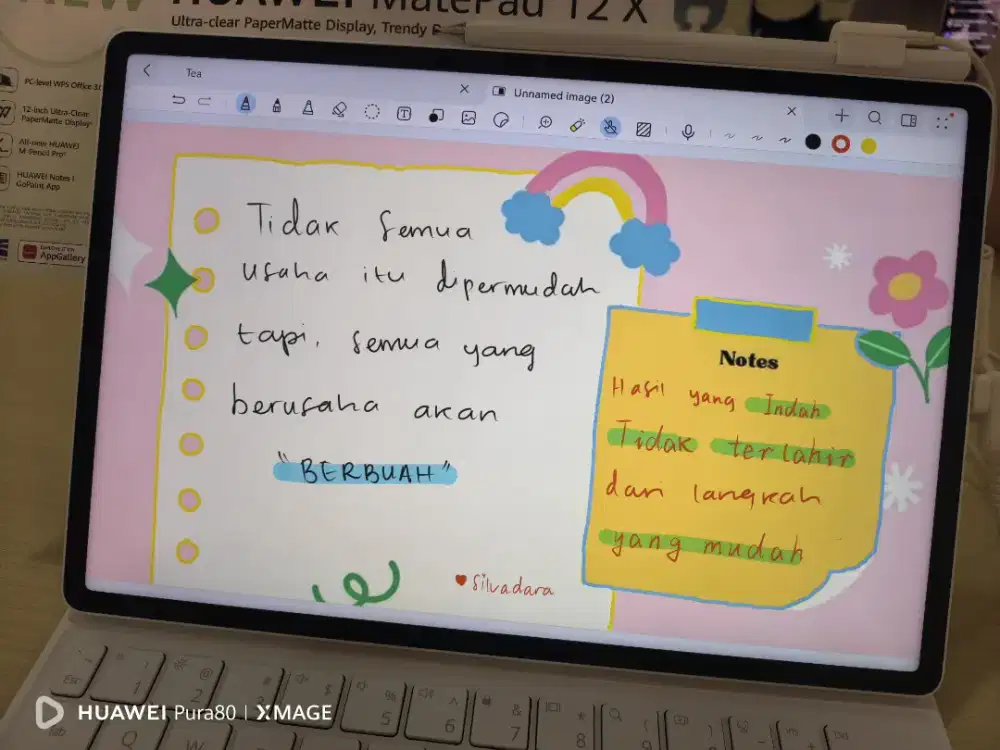 HUAWEI MatePad 12 X
Ultra-clear PaperMatte Display, Trendy
PC-level WPS Office
12-inch Ultra-Clear
PaperMatte Display
All-new HUAWEI
M-Pencil Pro
HUAWEI Notes |
GoPaint App
AppGallery
Tea
Unnamed image (2)
Tidak semua
usaha itu dipermudah
tapi, semua yang
berusaha akan
"BERBUAH"
Silvadara
Notes
Hasil yang Indah
Tidak terlahir
dari langkah
yang mudah
HUAWEI Pura80 | XMAGE